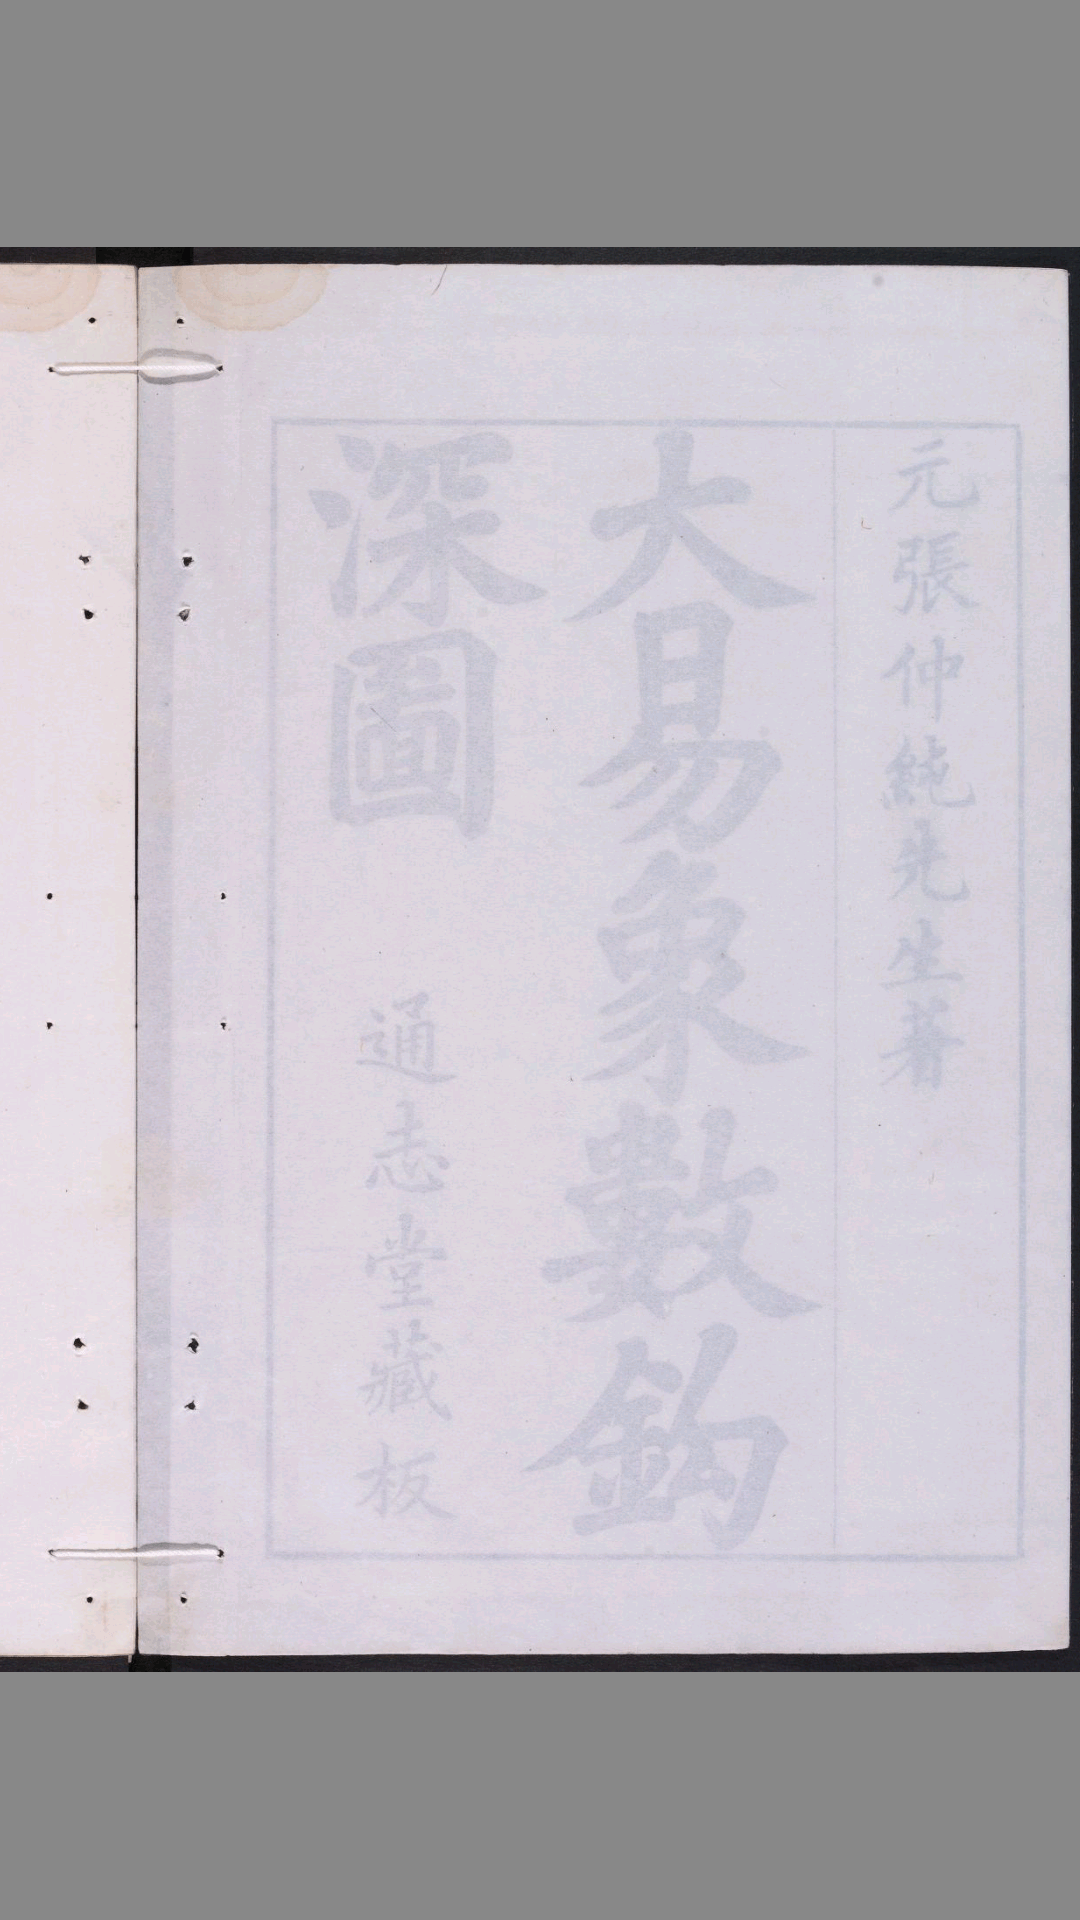 元張仲純先生著
大易象數鈎
深圖
通志堂藏板